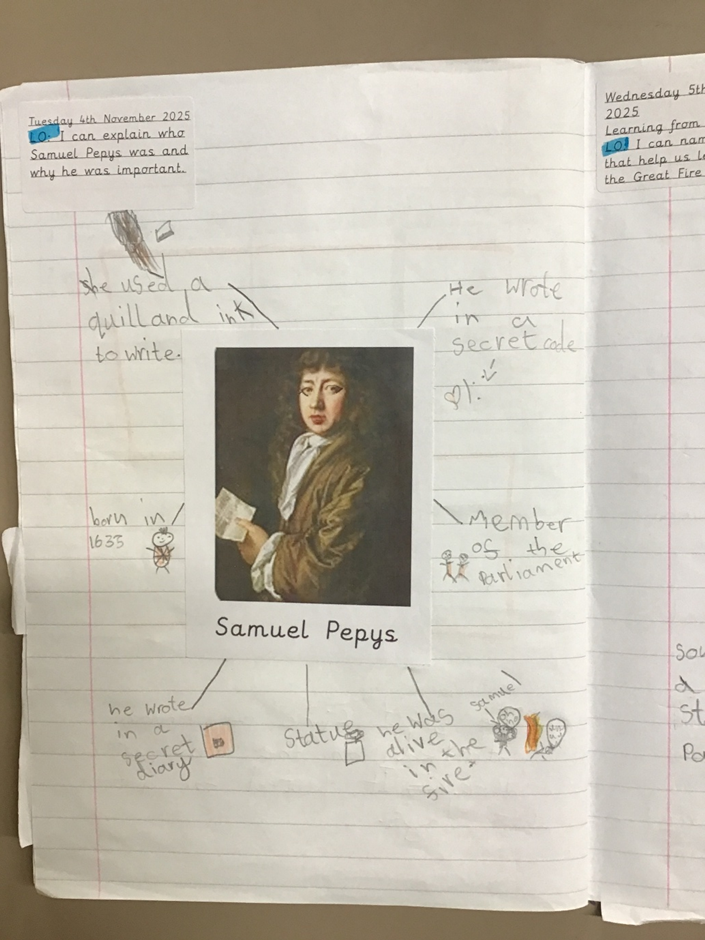 Tuesday 4th November 2025
LO: I can explain who
Samuel Pepys was and
why he was important.
she used a
quill and ink
to write.
He wrote
in a
secret code
born in
1633
Member
of the
Parliament
Samuel Pepys
he wrote
in a
secret
diary
Statue
he was
alive
in the
fire
Samuel
Wednesday 5th
2025
Learning from
LO: I can nam
that help us le
the Great Fire
a
st